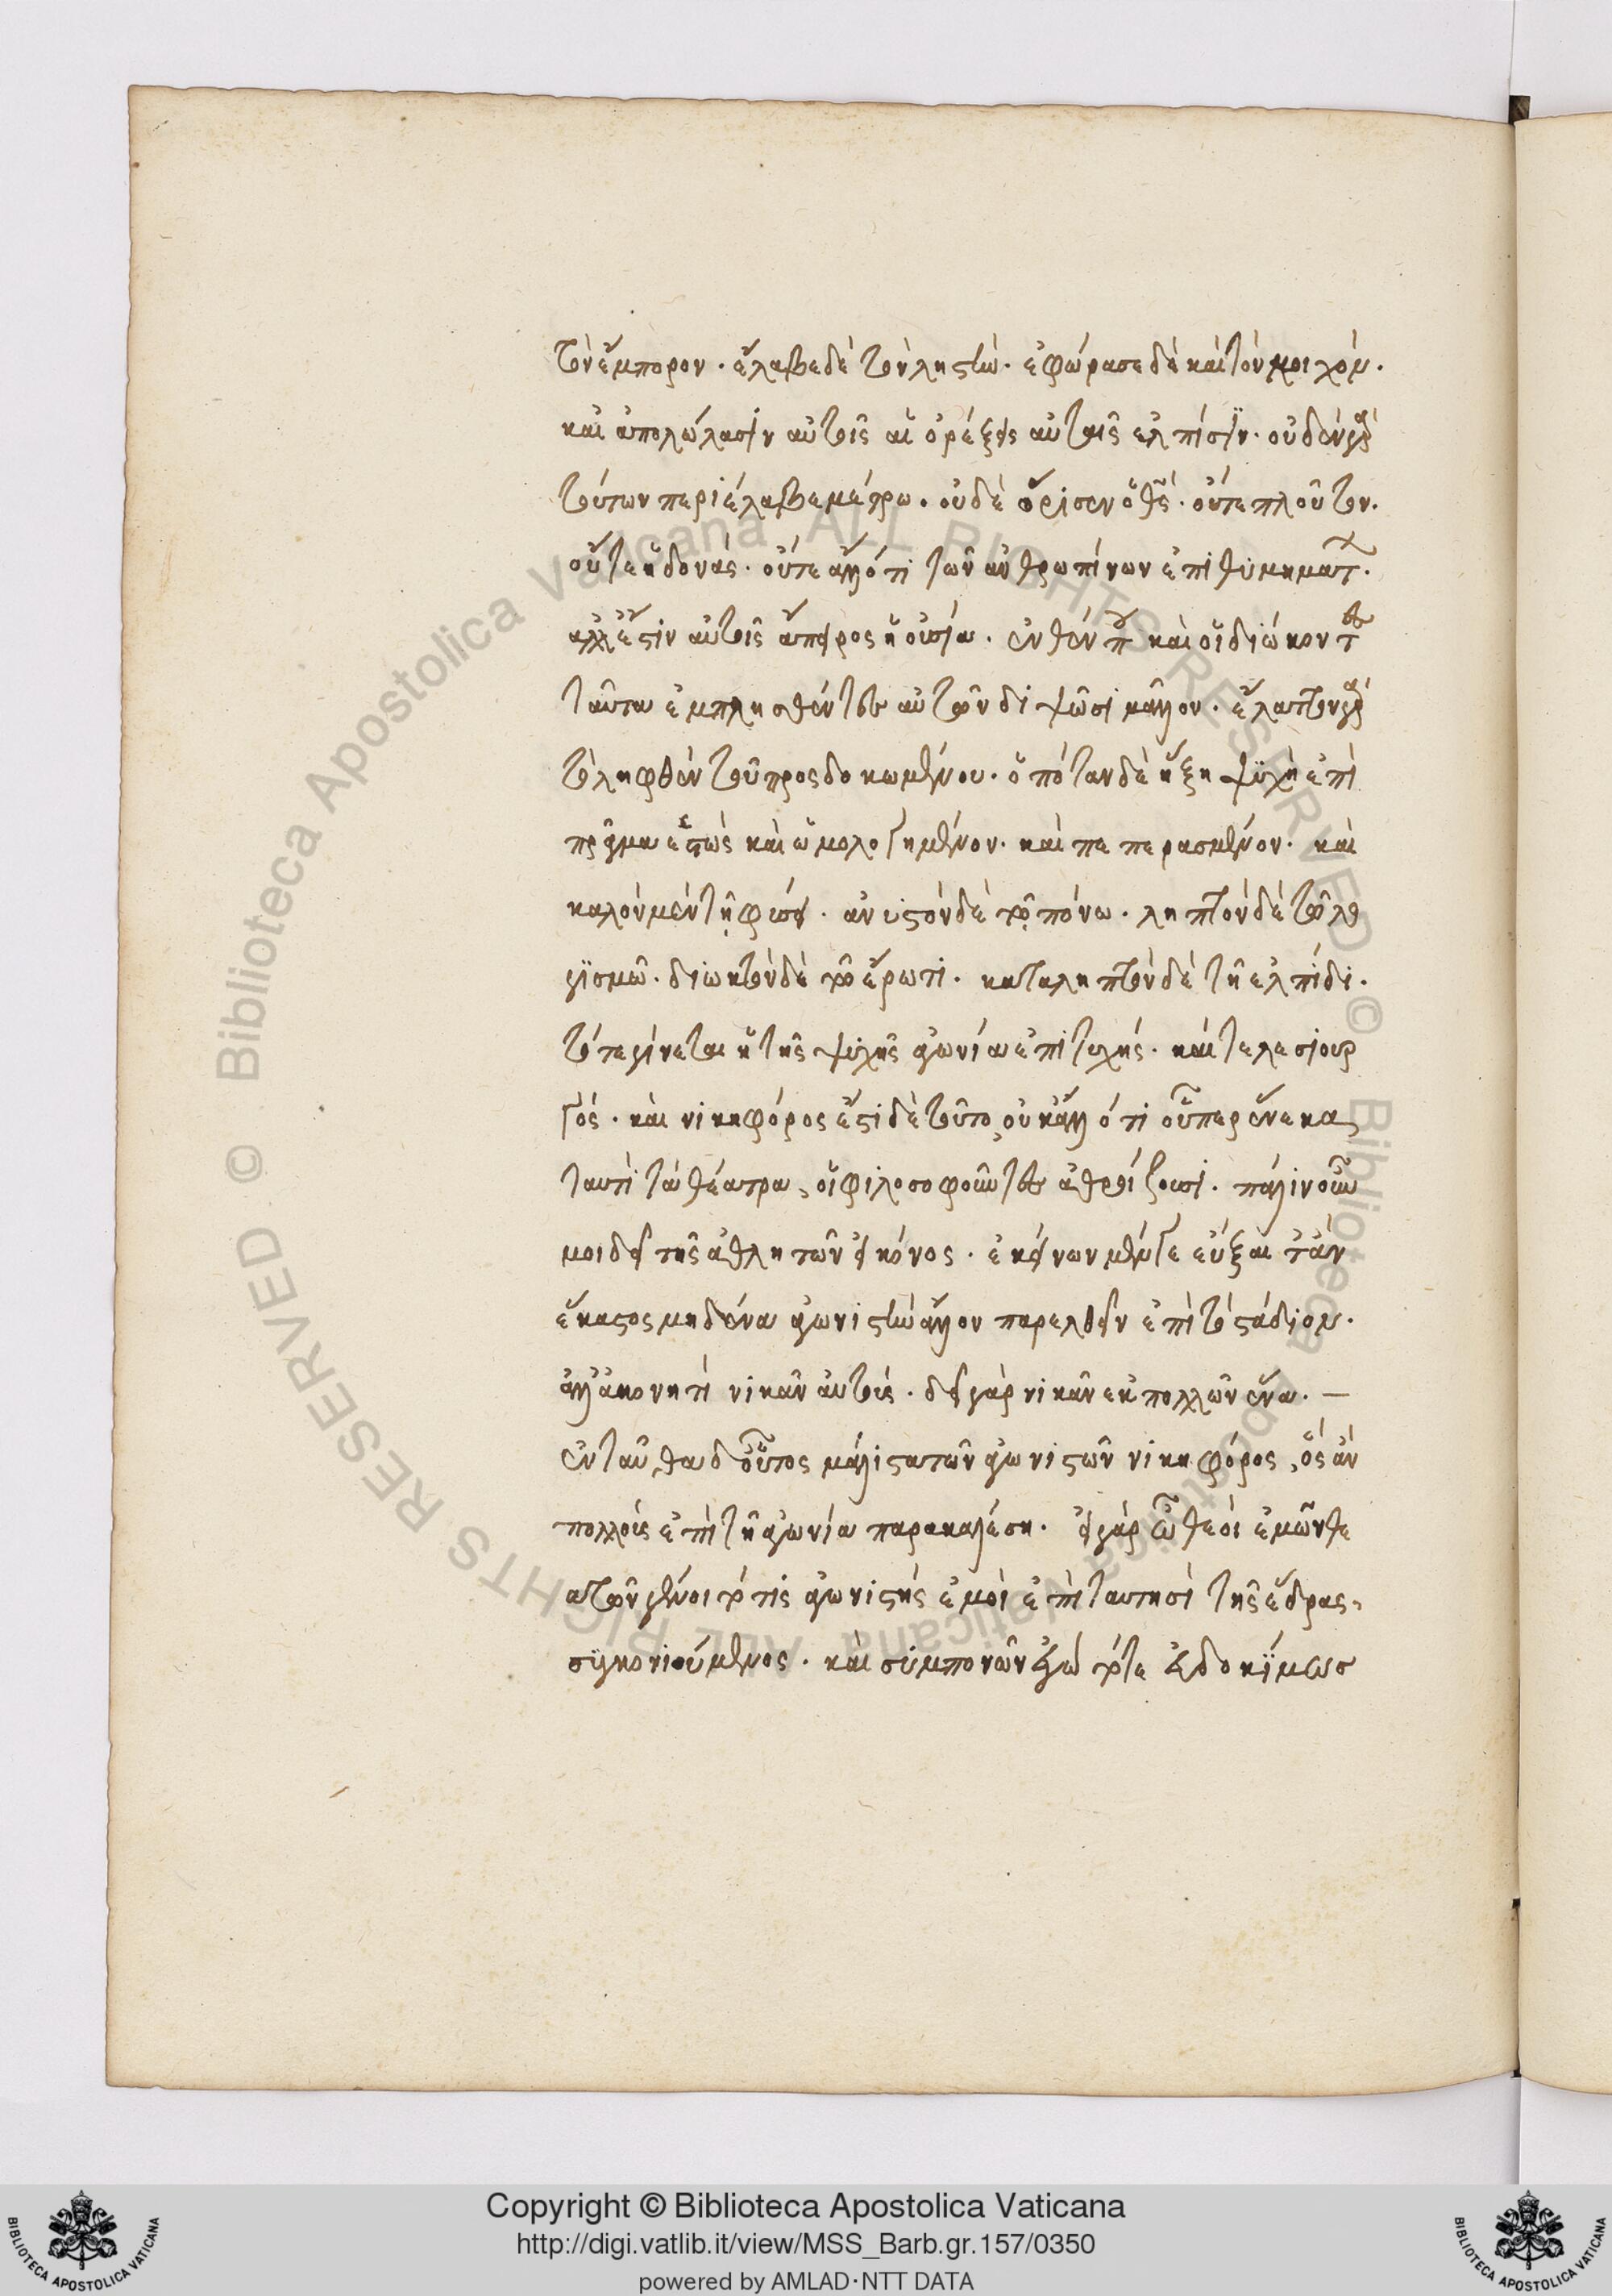 τὸν ἔμπορον. ἔλαβε δὲ τὸν ληστήν. ἐφώρασε δὲ καὶ τὸν μοιχόν.
καὶ ἀπολώλασιν αὐτοῖς αἱ ὀρέξεις αὐταῖς ἐλπίσιν. οὐδὲν γὰρ
τούτων περιέλαβε μέτρω. οὐδὲ ὥρισεν ὁ θεός. οὔτε πλοῦτον.
οὔτε ἡδονάς. οὔτε ἄλλό τι τῶν ἀνθρωπίνων ἐπιθυμημάτων.
ἀλλ' ἔστιν αὐτοῖς ἄπειρος ἡ οὐσία. ἐνθέν που καὶ οἱ διώκοντες
ταῦτα ἐμπλησθέντες αὐτῶν διψῶσι μᾶλλον. ἔλαττον γὰρ
τὸ ληφθὲν τοῦ προσδοκωμένου. ὁπόταν δὲ ἥξη ψυχὴ ἐπὶ
πρᾶγμα ἑστὼς καὶ ὡμολογημένον. καὶ πεπερασμένον. καὶ
καλὸν μὲν τῇ φύσει. ἀνυστὸν δὲ τῷ πόνω. ληπτὸν δὲ τῶ λο
γισμῶ. διωκτὸν δὲ τῶ ἔρωτι. καταληπτὸν δὲ τῆ ἐλπίδι.
τότε γίνεται ἡ τῆς ψυχῆς ἀγωνία ἐπιτυχής. καὶ τελεσιουρ
γός. καὶ νικηφόρος ἔστι δὲ τοῦτο, οὐκ ἄλλό τι οὗπερ ἕνεκα,
ταυτὶ τὰ θέατρα, οἱ φιλοσοφοῦντες ἀθροίζουσι. πάλιν οὖν
μοι δεῖ τῆς ἀθλητῶν εἰκόνος. ἐκείνων μέν γε εὔξαιτ' ἂν
ἕκαστος μηδένα ἀγωνιστὴν ἄλλον παρελθεῖν ἐπὶ τὸ στάδιον.
ἀλλ' ἀκονητὶ νικᾶν αὐτός. δεῖ γὰρ νικᾶν ἐκ πολλῶν ἕνα. —
ἐνταῦθα δ' οὗτος μάλιστα τῶν ἀγωνιστῶν νικηφόρος, ὃς ἂν
πολλοὺς ἐπὶ τῆ ἀγωνία παρακαλέση. εἰ γὰρ ὦ θεοὶ ἐμῶν θε
ατῶν γένοιτό τις ἀγωνιστής ἐμοὶ ἐπὶ ταυτησὶ τῆς ἕδρας,
συγκονιούμενος. καὶ συμπονῶν ἐγὼ τότε εὐδοκίμως
Copyright © Biblioteca Apostolica Vaticana
http://digi.vatlib.it/view/MSS_Barb.gr.157/0350
powered by AMLAD·NTT DATA